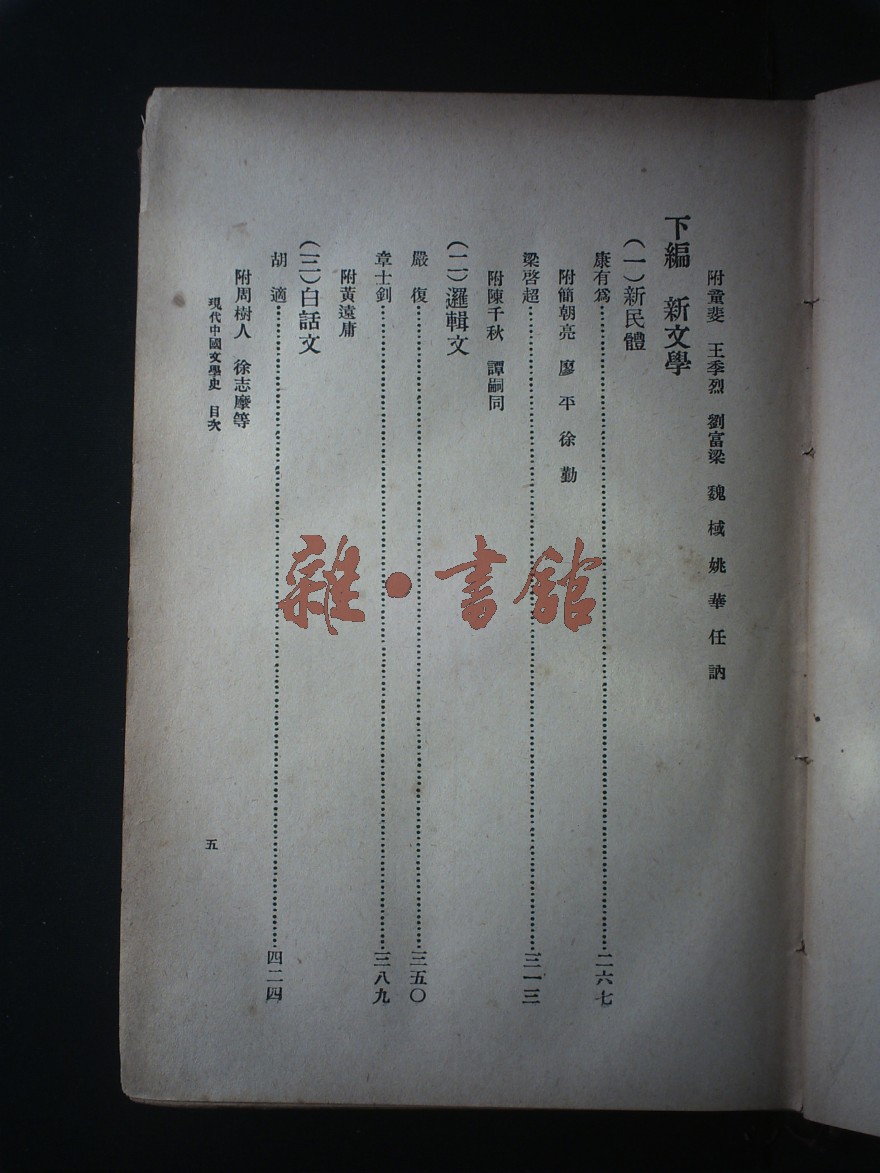 附童斐　王季烈　劉富梁　魏　棫　姚　華　任　訥
下編　新文學
（一）新民體
康有爲……二六七
附簡朝亮　廖　平　徐　勤
梁啓超……三一三
附陳千秋　譚嗣同
（二）邏輯文
嚴　復……三五〇
章士釗……三八九
附黃遠庸
（三）白話文
胡　適……四二四
附周樹人　徐志摩等
現代中國文學史　目次
五
雜·書館